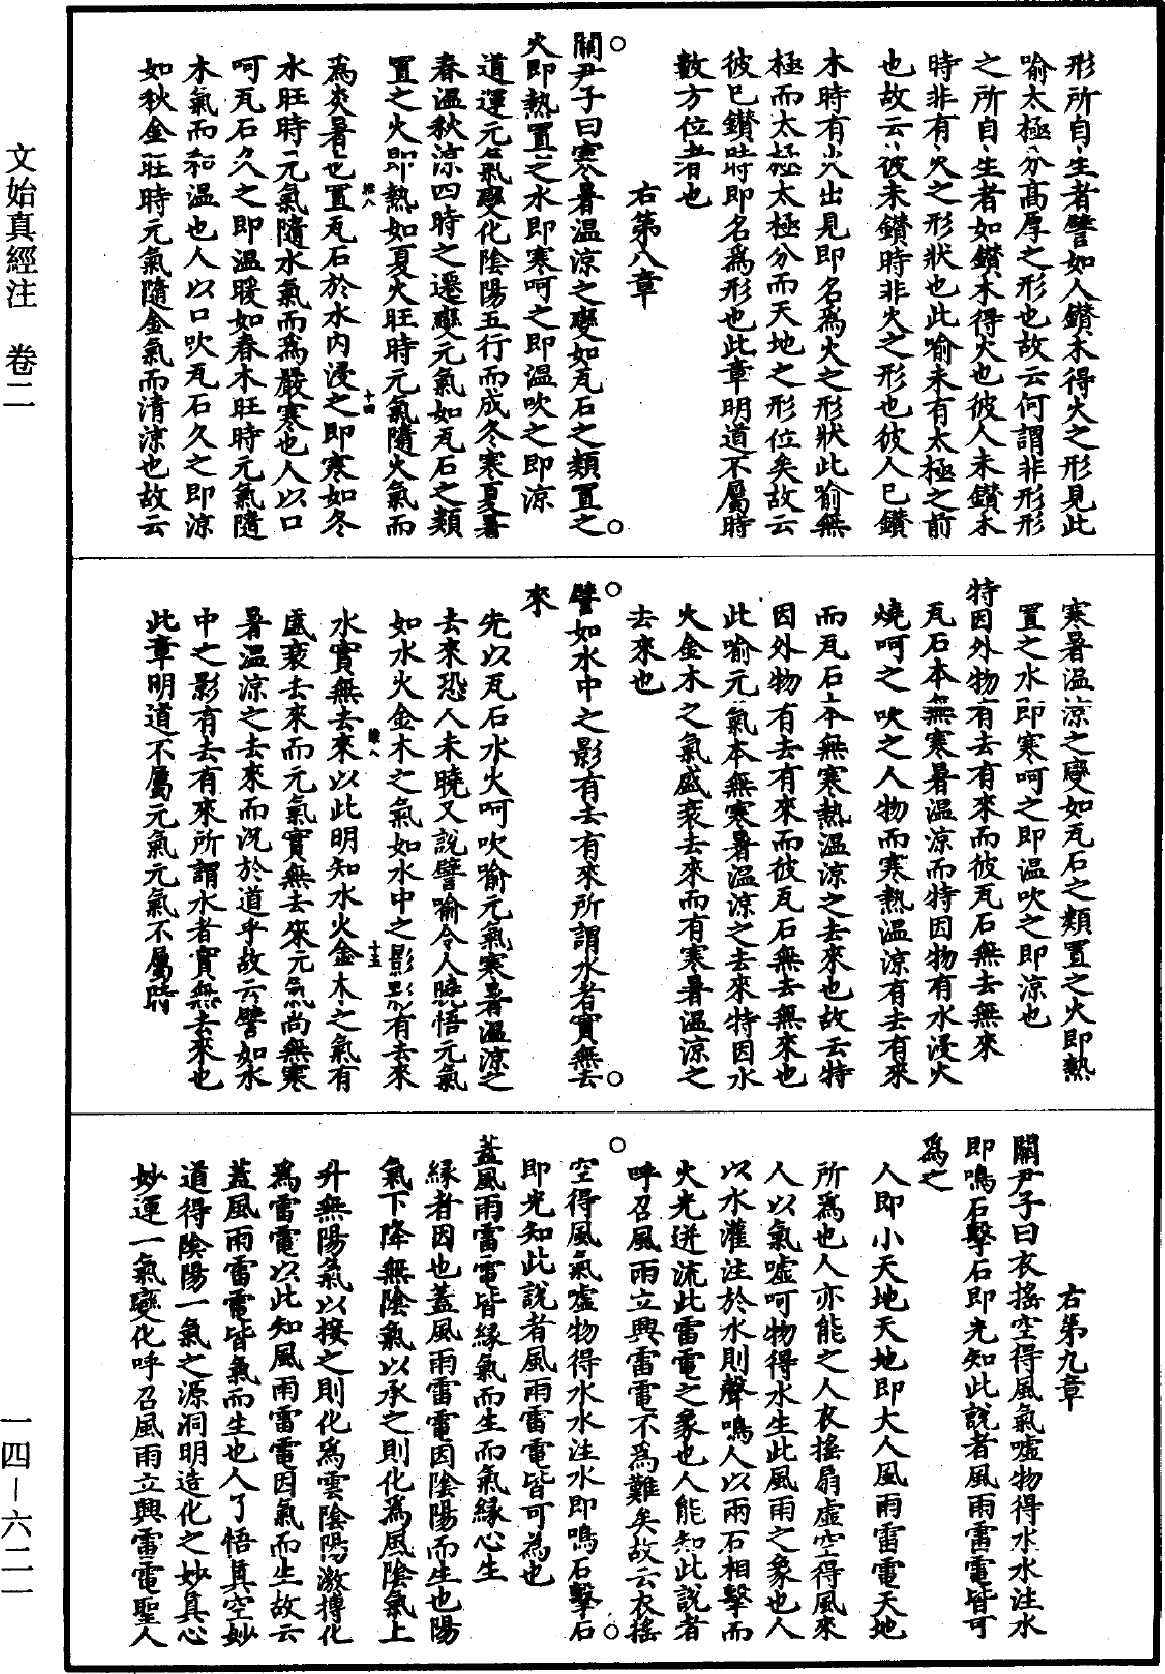 形所自生者譬如人鑽木得火之形見此
喻太極分高厚之形也故云何謂非形形
之所自生者如鑽木得火也彼人未鑽木
時非有火之形狀也此喻未有太極之前
也故云彼未鑽時非火之形也彼人已鑽
木時有火出見即名爲火之形狀此喻無
極而太極太極分而天地之形位矣故云
彼已鑽時即名爲形也此章明道不屬時
數方位者也
右第八章
關尹子曰寒暑温涼之變如瓦石之類置之
火即熱置之水即寒呵之即温吹之即涼
道運元氣變化陰陽五行而成冬寒夏暑
春温秋涼四時之遷變元氣如瓦石之類
置之火即熱如夏火旺時元氣隨火氣而
爲炎暑也置瓦石於水内浸之即寒如冬
水旺時元氣隨水氣而爲嚴寒也人以口
呵瓦石久之即温暖如春木旺時元氣隨
木氣而和温也人以口吹瓦石久之即涼
如秋金旺時元氣隨金氣而清涼也故云
寒暑温涼之變如瓦石之類置之火即熱
置之水即寒呵之即温吹之即涼也
特因外物有去有來而彼瓦石無去無來
瓦石本無寒暑温涼而特因物有水浸火
燒呵之吹之人物而寒熱温涼有去有來
而瓦石本無寒熱温涼之去來也故云特
因外物有去有來而彼瓦石無去無來也
此喻元氣本無寒暑温涼之去來特因水
火金木之氣盛衰去來而有寒暑温涼之
去來也
譬如水中之影有去有來所謂水者實無去
來
先以瓦石水火呵吹喻元氣寒暑温涼之
去來恐人未曉又說譬喻令人曉悟元氣
如水火金木之氣如水中之影影有去來
水實無去來以此明知水火金木之氣有
盛衰去來而元氣實無去來元氣尚無寒
暑温涼之去來而況於道乎故云譬如水
中之影有去有來所謂水者實無去來也
此章明道不屬元氣元氣不屬時
右第九章
關尹子曰衣搖空得風氣噓物得水水注水
即鳴石擊石即光知此說者風雨雷電皆可
爲之
人即小天地天地即大人風雨雷電天地
所爲也人亦能之人衣搖扇虛空得風來
人以氣噓呵物得水生此風雨之象也人
以水灌注於水則聲鳴人以兩石相擊而
火光迸流此雷電之象也人能知此說者
呼召風雨立興雷電不爲難矣故云衣搖
空得風氣噓物得水水注水即鳴石擊石
即光知此說者風雨雷電皆可為也
蓋風雨雷電皆緣氣而生而氣緣心生
緣者因也蓋風雨雷電因陰陽而生也陽
氣下降無陰氣以承之則化爲風陰氣上
升無陽氣以接之則化爲雲陰陽激搏化
爲雷電以此知風雨雷電因氣而生故云
蓋風雨雷電皆氣而生也人了悟真空妙
道得陰陽一氣之源洞明造化之妙真心
妙運一氣變化呼召風雨立興雷電聖人
文始真經注　卷二
一四—六二一